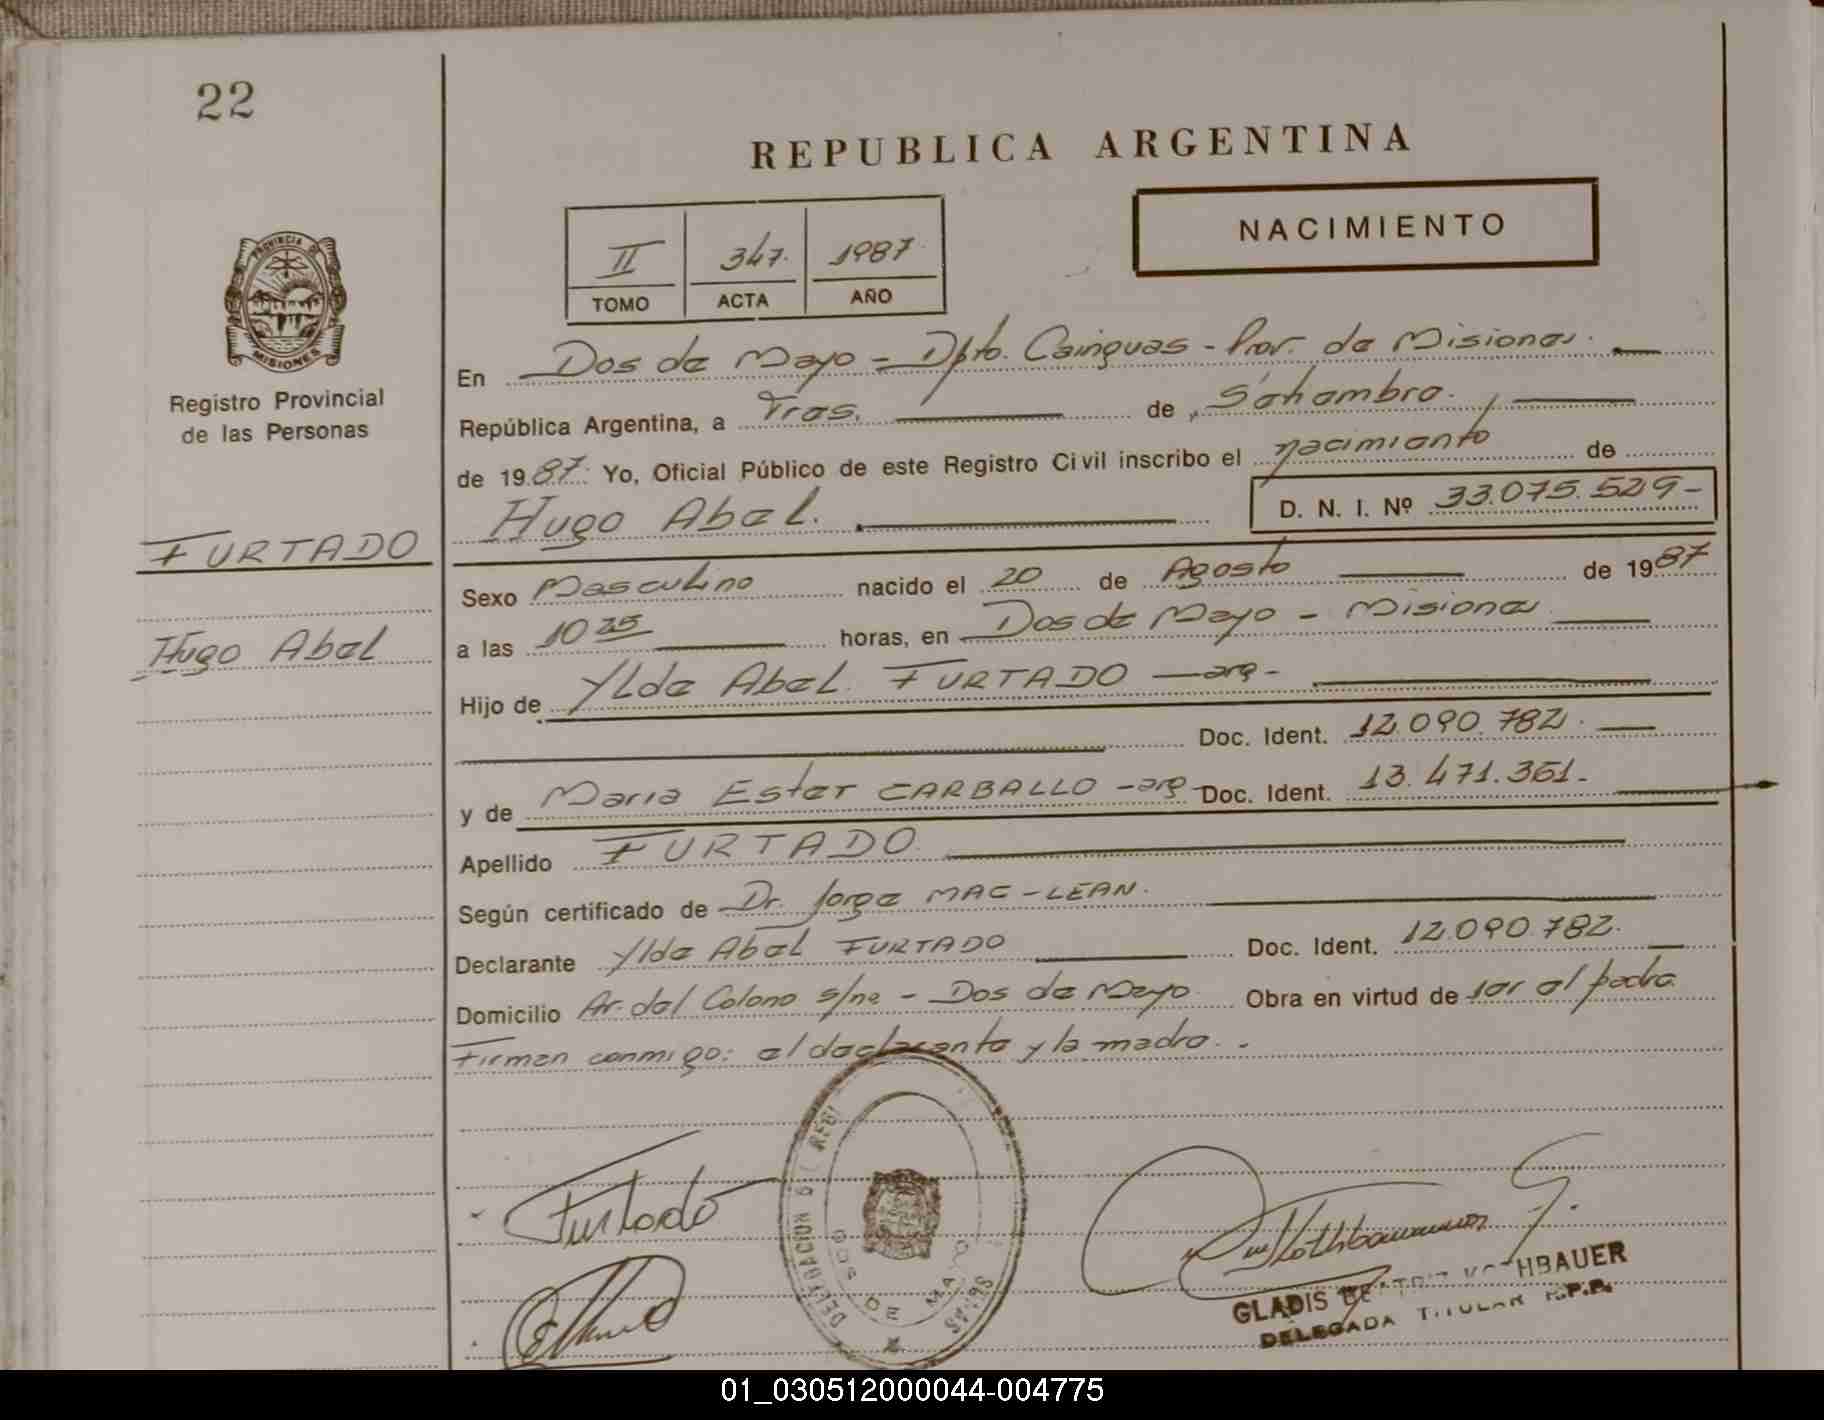 22
REPUBLICA ARGENTINA
NACIMIENTO
II 347. 1987.
TOMO ACTA AÑO
PROVINCIA DE
MISIONES
Registro Provincial
de las Personas
FURTADO
Hugo Abel
En Dos de Mayo - Dpto. Cainguas - Prov. de Misiones.
República Argentina, a Tres. de Setiembre.
de 1987. Yo, Oficial Público de este Registro Civil inscribo el nacimiento de
Hugo Abel. D. N. I. Nº 33.075.529-
Sexo Masculino nacido el 20 de Agosto de 1987
a las 10 25 horas, en Dos de Mayo - Misiones
Hijo de Ylde Abel FURTADO - arg -
Doc. Ident. 12.090.782.
y de Maria Ester CARBALLO - arg - Doc. Ident. 13.471.361.-
Apellido FURTADO.
Según certificado de Dr. Jorge MAC-LEAN.
Declarante Ylde Abel FURTADO Doc. Ident. 12.090.782.
Domicilio Av. del Colono s/nº - Dos de Mayo Obra en virtud de ser el padre
Firman conmigo: el declarante y la madre. .
Furtado
DELEGACION DOS DE MAYO
GLADIS BEATRIZ KOTHBAUER
DELEGADA TITULAR R.P.P.
01_030512000044-004775